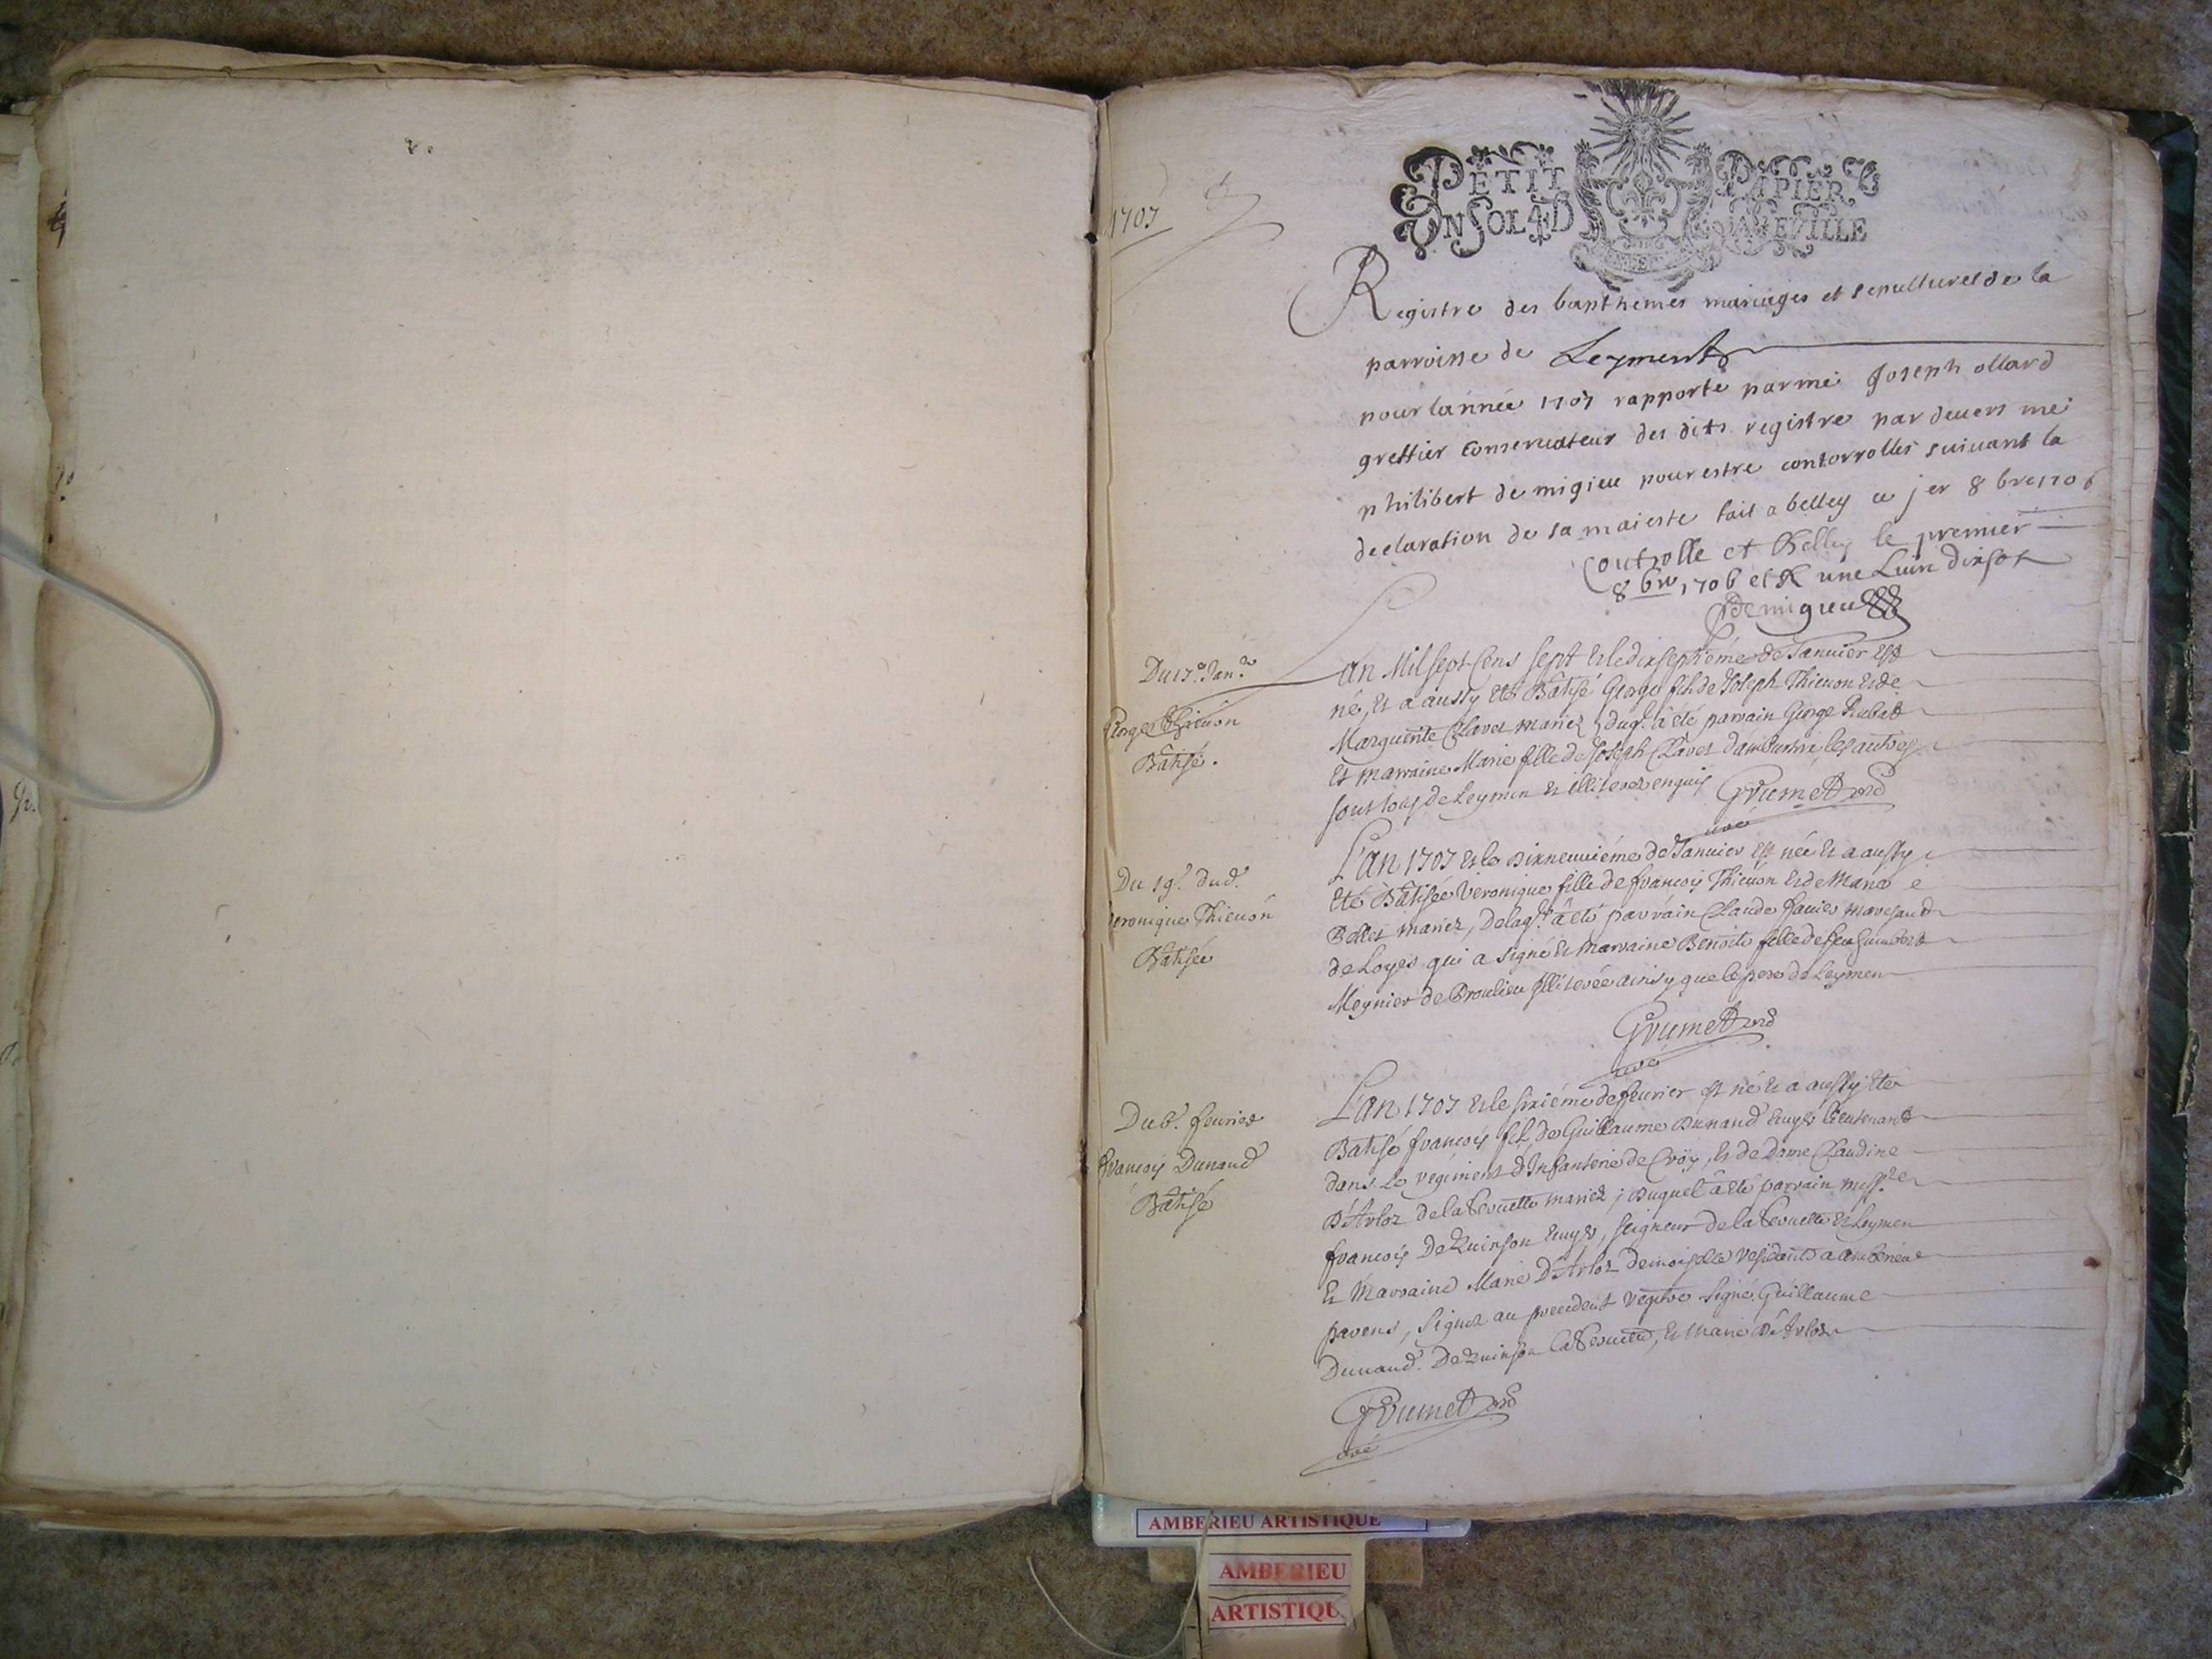 1707
PETIT PAPIER
UN SOL 4 D LA FEVILLE
Registre des bapthemes mariages et sepultures de la
parroisse de Leyment
pour lannée 1707 rapporte par me Joseph ollard
greffier conservateur des dits registre par devers me
philibert de migieu pour estre contorrolles suivant la
declaration de sa maieste fait a belley ce jer 8 bre 1706
Controlle et Belley le premier
8 bre 1706 et R une Livre dix sol
Demigieu
Du 17e Janr
George Thieuon
Bâtisé.
L'an Mil sept Cens sept et le dix septiéme de Januier est
né, et a aussy eté Bâtisé George fils de Joseph Thieuon et de
Marguerite Clavet mariez, duql. â été parrain George Rubat
et marraine Marie fille de Joseph Clavet les autres
sont tous de Leymen et illiterez enquis Grumet
curé
Du 19e. dud.
Veronique Thieuon
Bâtisée
L'an 1707 et le Dixneuuiéme de Januier est née et a aussy
eté Bâtisée Veronique fille de françois Thieuon et de Marie
Bellet mariez, De laqle. â eté parrain Claude Janier
de Loyes qui a signé et marraine Benoite fille de feu
Meynier de Proulieu illiterée ainsy que le pere de Leymen
Grumet
curé
Du 6e. feurier
françois Dunand
Bâtisé
L'an 1707 et le sixiéme de feurier est né et a aussy eté
Batisé françois fils de Guillaume Dunand Lieutenant
dans le regiment d'Infanterie de Croÿ, et de Dame Claudine
D'Arloz de la Servette mariez ; Duquel â eté parrain messre
françois De Quinson, seigneur de la Servette et Leymen
et Marraine Marie D'Arloz demoiselle residante a
parens, signez au precedent regitre signé Guillaume
Dunand. De Quinson la Servette, et Marie D'Arloz
Grumet
curé
AMBERIEU ARTISTIQUE
AMBERIEU
ARTISTIQU